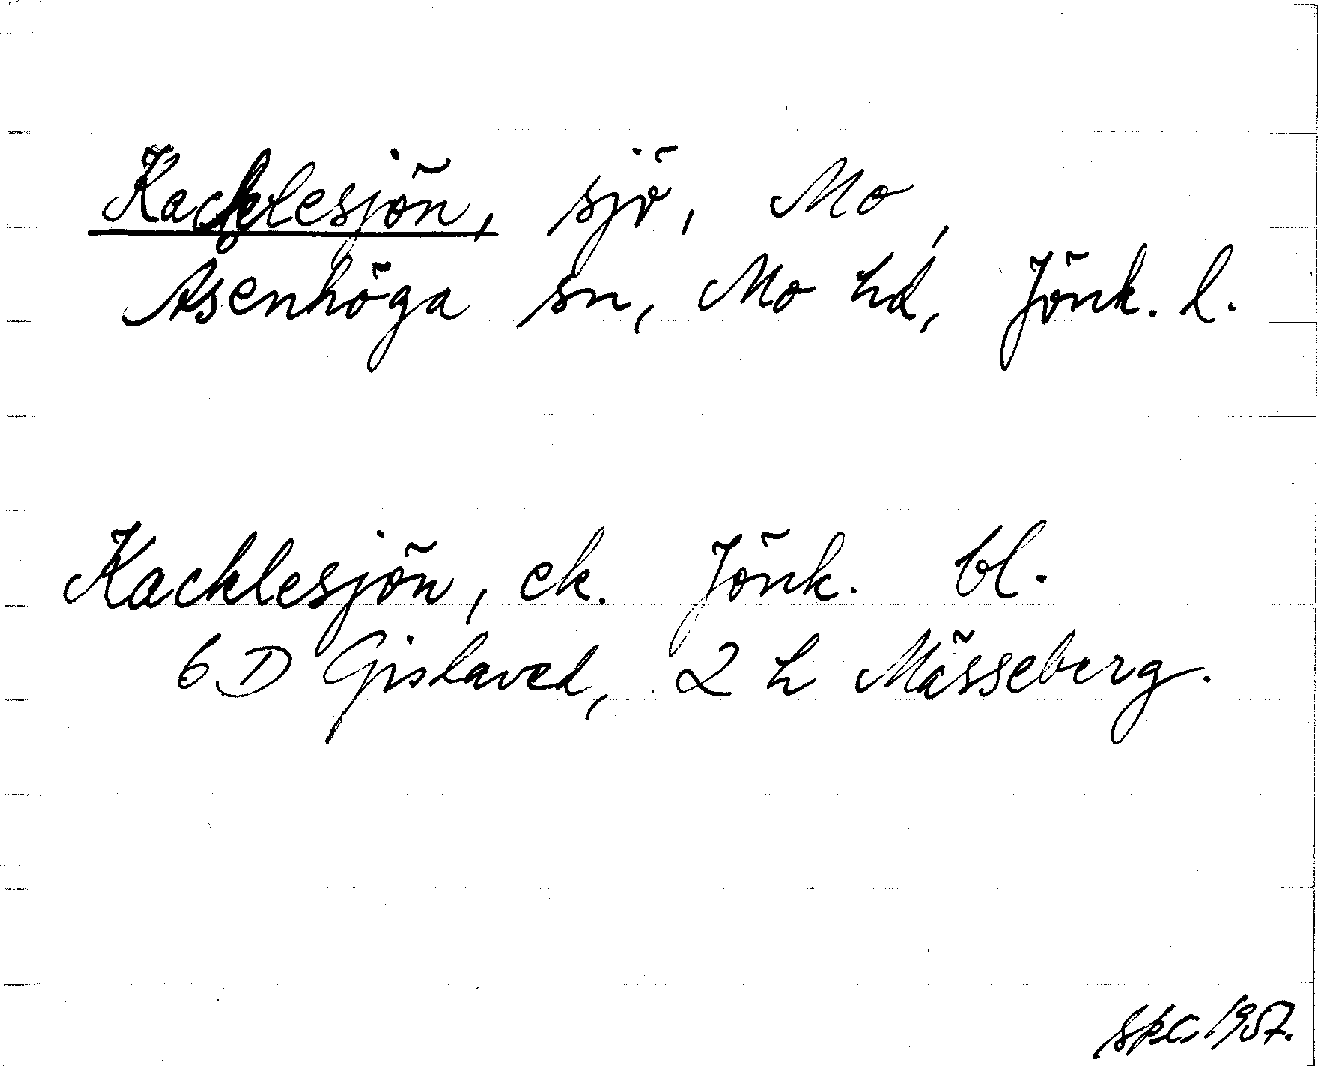 Kacklesjön, sjö, Mo,
Åsenhöga sn, Mo hd, Jönk. l.
Kacklesjön, ek. Jönk. bl.
6 D Gislaved, 2 h Mässeberg.
1957.